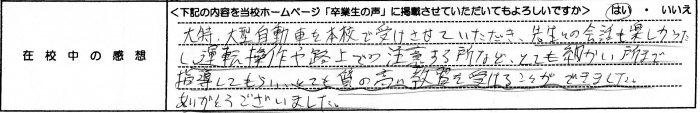 <下記の内容を当校ホームページ「卒業生の声」に掲載させていただいてもよろしいですか> はい ・ いいえ
在校中の感想
大特、大型自動車を本校で受けさせていただき、先生との会話も楽しかった
し運転操作や路上での注意する所など、とても細かい所まで
指導してもらい、とても質の高い教習を受けることができました。
ありがとうございました。